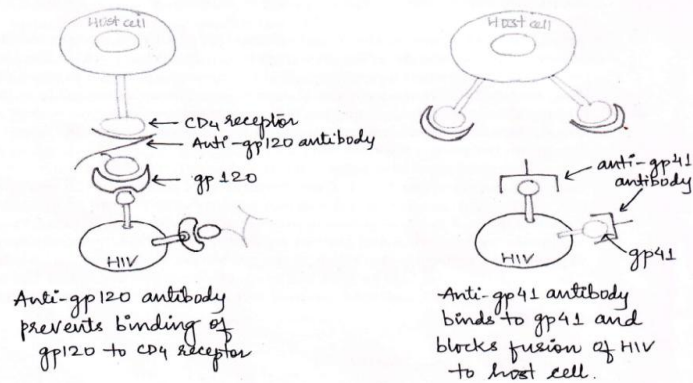 Host cell
CD4 receptor
Anti-gp120 antibody
gp 120
HIV
Anti-gp120 antibody
prevents binding of
gp120 to CD4 receptor
Host cell
anti-gp41
antibody
HIV
gp41
Anti-gp41 antibody
binds to gp41 and
blocks fusion of HIV
to host cell.